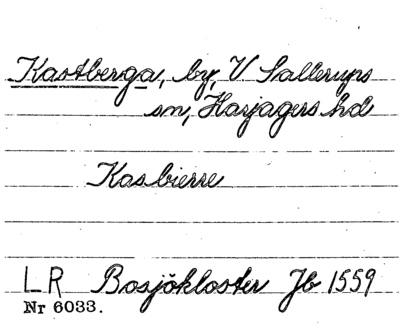 Kastberga, by, V Sallerups
sn, Harjagers hd
Kasbierre
LR Bosjökloster Jb 1559
Nr 6033.